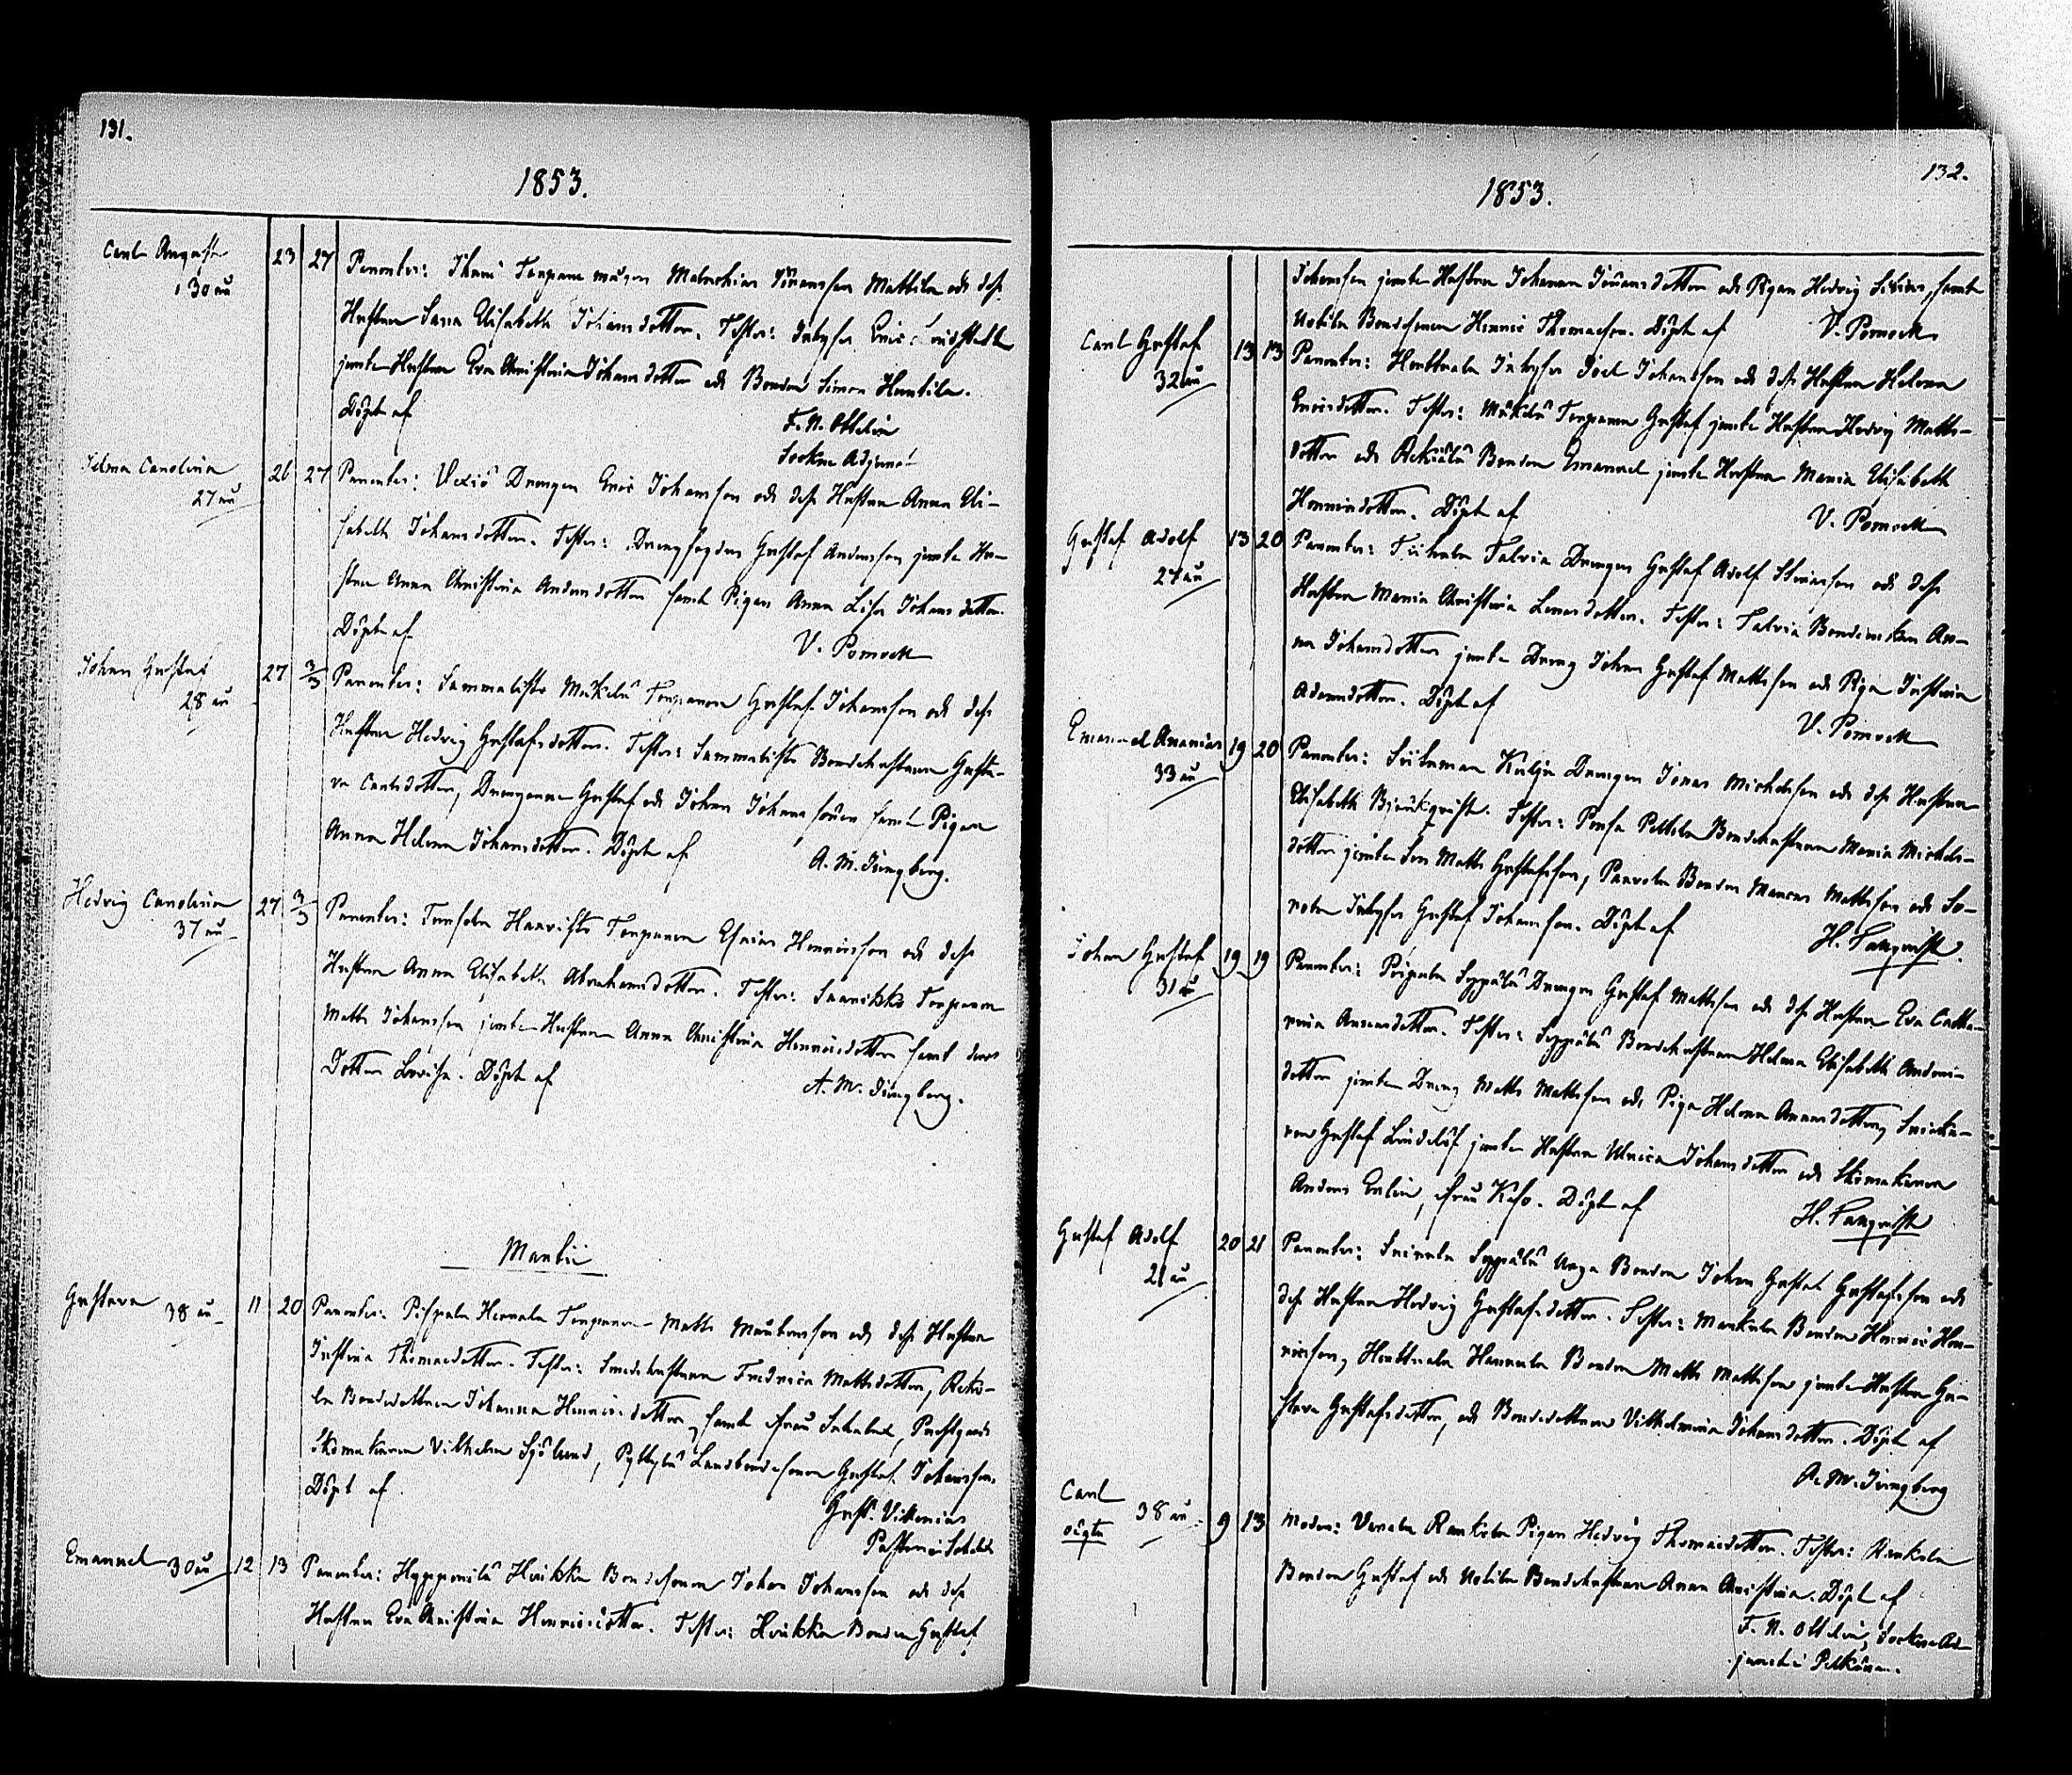 131.
1853.
Carl August
30 år
23 27 Parenter: Torparemågen Malachias Göransson Mattila och dess
Hustru Sara Elisabeth Johansdotter. Testes: Inhyses Eric
jemte Hustru Eva Christina Johansdotter och Bonden Simon Huntila.
Döpt af
F. N. Ottelin
Sockne Adjunct
Ilma Carolina
27 år
26 27 Parenter: Drengen Eric Johansson och dess Hustru Anna Eli-
sabeth Johansdotter. Testes: Drengfogden Gustaf Andersson jemte Hu-
stru Anna Christina Andersdotter samt Pigan Anna Lisa Johansdotter.
Döpt af
V. Pomoell
Johan Gustaf
28 år
27 3/3 Parenter: Sammalisto Mäkelä Torparen Gustaf Johansson och dess
Hustru Hedvig Gustafsdotter. Testes: Sammalisto Bondehustrun Gusta-
va Carlsdotter, Drengarne Gustaf och Johan Johanssöner samt Pigan
Anna Helena Johansdotter. Döpt af
A. M. Ljungberg.
Hedvig Carolina
37 år
27 3/3 Parenter: Haavisto Torparen Esaias Henricsson och dess
Hustru Anna Elisabeth Abrahamsdotter. Testes: Saarikko Torparen
Matts Johansson jemte Hustrun Anna Christina Henricsdotter samt deras
Dotter Lovisa. Döpt af
A. M. Ljungberg.
Martii
Gustava 38 år
11 20 Parenter: Pispala Torparen Matts Mårtensson och dess Hustru
Justina Thomasdotter. Testes: Smedehustrun Fredrica Mattsdotter,
Bondedottren Johanna Henricsdotter, samt från Sahalax, Prestgårds
Skomakaren Vilhelm Sjölund, Pyttylä Landbondesonen Gustaf Johansson.
Döpt af
Gust. Vittenius
Pastor i Sahalax
Emanuel 30 år
12 13 Parenter: Hyppärilä Heikka Bondesonen Johan Johansson och dess
Hustru Eva Christina Henricsdotter. Testes: Heikka Bonden Gustaf
132.
1853.
Johansson jemte Hustrun Johanna Göransdotter och Pigan Hedvig samt
Uotila Bondesonen Henric Thomasson. Döpt af
V. Pomoell
Carl Gustaf
32 år
13 13 Parenter: Huttula Inhyses Joel Johansson och dess Hustru Helena
Ericsdotter. Testes: Mäkelä Torparen Gustaf jemte Hustru Hedvig Matts-
dotter och Bonden Emanuel jemte Hustru Maria Elisabeth
Henricsdotter. Döpt af
V. Pomoell
Gustaf Adolf
27 år
13 20 Parenter: Talvia Drengen Gustaf Adolf och dess
Hustru Maria Christina Testes: Talvia Bondeenkan An-
na Johansdotter jemte Dreng Johan Gustaf Mattsson och Piga Justina
Adamsdotter. Döpt af
V. Pomoell
Emanuel Ananias
33 år
19 20 Parenter: Drengen Jonas Michelsson och dess Hustru
Elisabeth Björkqvist. Testes: Pettila Bondehustrun Maria Michels-
dotter jemte Son Matts Gustafsson, Paavola Bonden Marcus Mattsson och
Inhyses Gustaf Johansson. Döpt af
H. Lanqvist.
Johan Gustaf
31 år
19 19 Parenter: Seppälä Drengen Gustaf Mattsson och dess Hustru Eva Catha-
rina Testes: Seppälä Bondehustrun Helena Elisabeth Anders-
dotter jemte Dreng Matts Mattsson och Piga Helena Snicka-
ren Gustaf Lindelöf jemte Hustru Ulrica Johansdotter och Skomakaren
Anders från Döpt af
H. Lanqvist
Gustaf Adolf
21 år
20 21 Parenter: Seppälä Unga Bonden Johan Gustaf Gustafsson och
dess Hustru Hedvig Gustafsdotter. Testes: Markula Bonden Henric Hen-
ricsson, Huttula Hannula Bonden Matts Mattsson jemte Hustru Gu-
stava Gustafsdotter, och Bondedottren Vilhelmina Johansdotter. Döpt af
A. M. Ljungberg
Carl
oägta
38 år
9 13 Moder: Pigan Hedvig Thomasdotter. Testes:
Bonden Gustaf och Uotila Bondehustrun Anna Christina. Döpt af
F. N. Ottelin, Sockne Ad-
junct i Pelkäne.